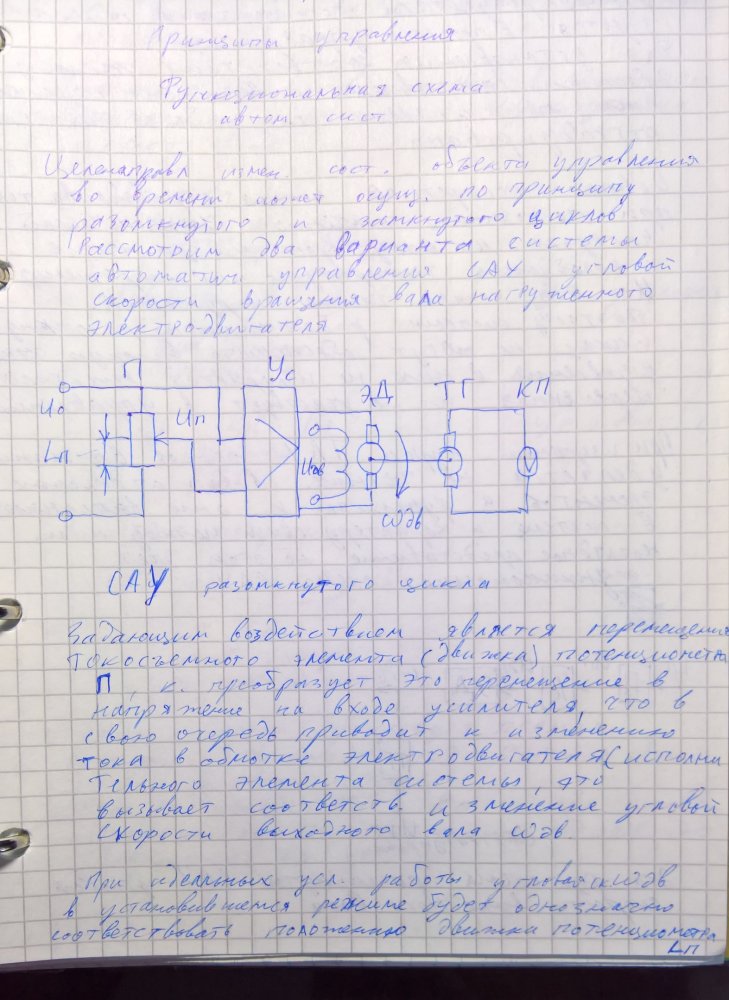 Принципы управления
Функциональная схема
автом. сист
Целенаправл измен. сост. объекта управления
во времени может осущ. по принципу
разомкнутого и замкнутого циклов
Рассмотрим два варианта системы
автоматич. управления САУ угловой
скорости вращения вала нагруженного
электродвигателя
П Ус ЭД ТГ КП
U₀ Uп
Lп Uов V
ωдв
САУ разомкнутого цикла
Задающим воздействием является перемещения
токосъемного элемента (движка) потенциометр
П, к. преобразует это перемещение в
напряжение на входе усилителя, что в
свою очередь приводит к изменению
тока в обмотке электродвигателя (исполни
тельного элемента системы, это
вызывает соответств. изменение угловой
скорости выходного вала ωдв.
При идеальных усл. работы угловой ск ωдв
в установившемся режиме будет однозначно
соответствовать положению движка потенциометра
Lп